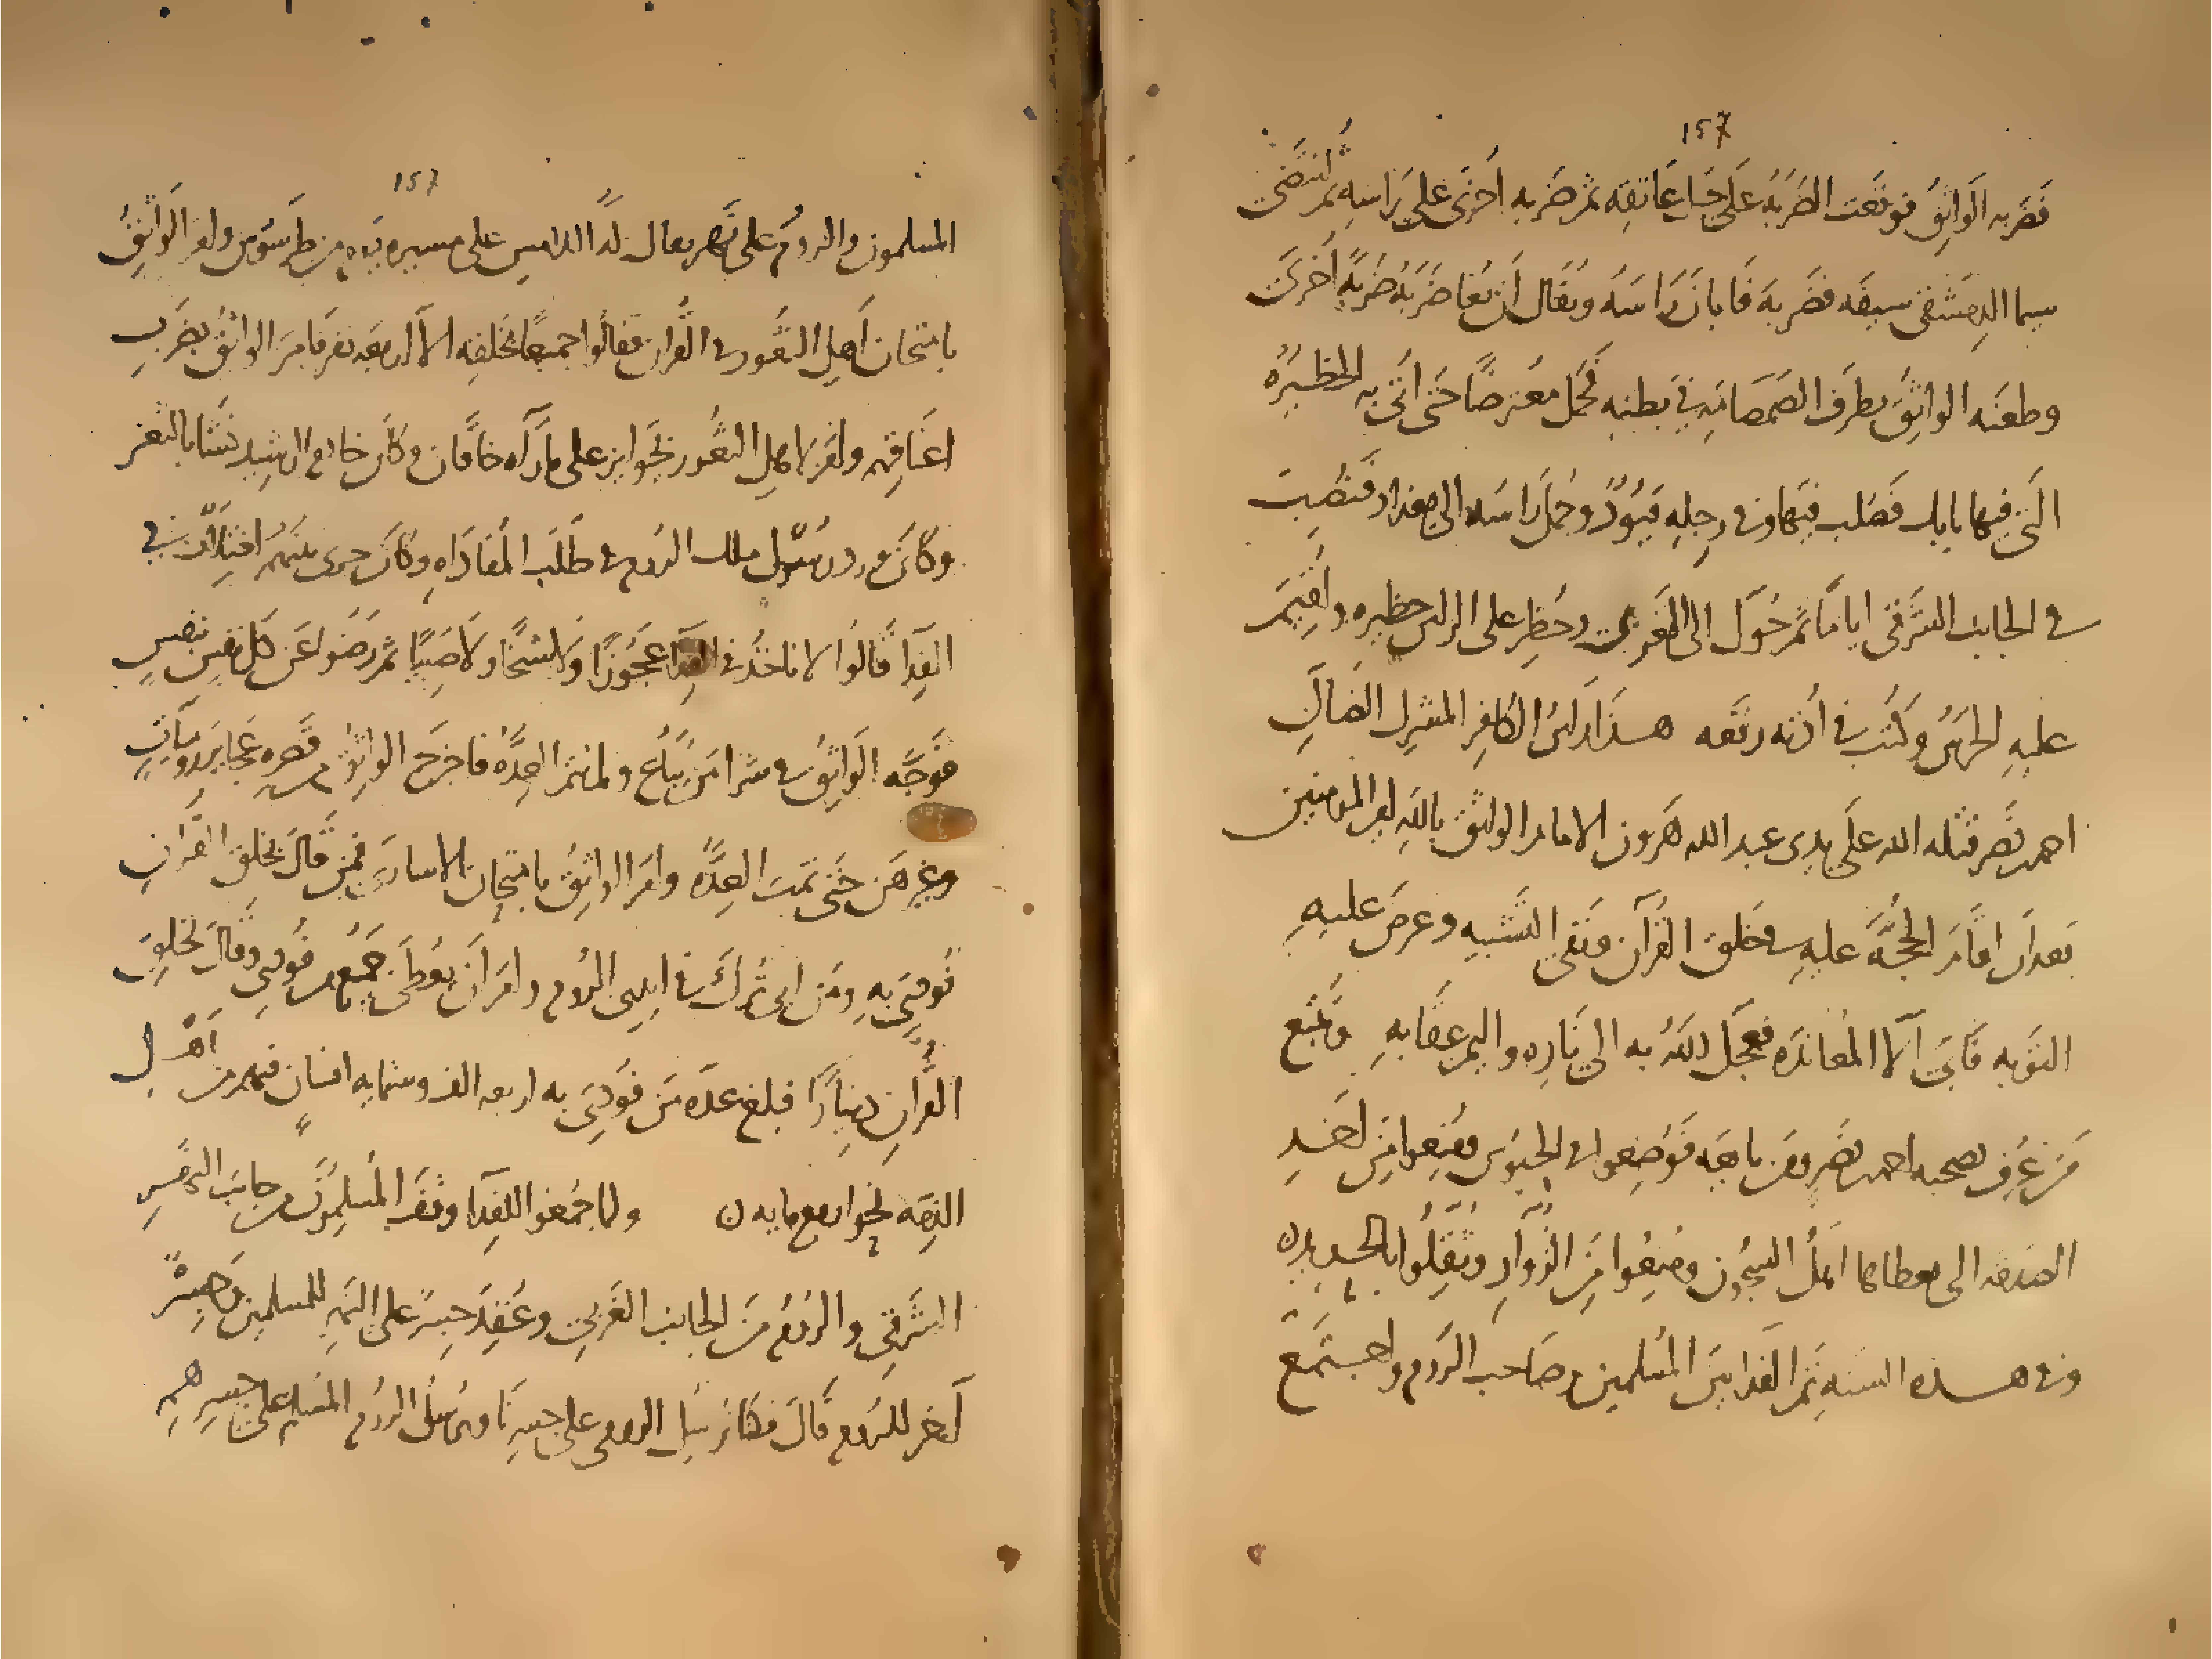 157
فضربه الواثق فوقعت الضربة على حبل عاتقه ثم ضربه أخرى على راسه ثم انتضى
سيما الدمشقي سيفه فضربه فابان راسه ويقال ان بغا ضربه ضربة أخرى
وطعنه الواثق بطرف الصمصامه في بطنه فحمل معترضا حتى اتى به الحظيره
التي فيها بابك فصلب فيها وفي رجله قيود وحمل راسه الى بغداد فنصب
في الجانب الشرقي اياما ثم حول الى الغربي وحظر على الراس حظيره واقيم
عليه الحرس وكتب في أذنه رقعه هذا راس الكافر المشرك الضال
احمد نصر قتله الله على يدي عبد الله هرون الامام الواثق بالله امير المومنين
بعد ان اقام الحجة عليه في خلق القرآن ونفي التشبيه وعرض عليه
التوبه فابى الا المعاندة فعجل الله به الى ناره واليم عقابه وتتبع
من عرف بصحبه احمد نصر ومن بايعه فوضعوا في الحبوس ومنعوا من اخذ
الصدقه التي يعطاها اهل السجون ومنعوا من الزوار وثقلوا بالحديد
وفي هذه السنه تم الفدا بين المسلمين وصاحب الروم واجتمع
157
المسلمون والروم على نهر يقال له اللامس على مسيره يوم من طرسوس وامر الواثق
بامتحان اهل الثغور في القران فقالوا جميعا بخلقه الا اربعه نفر فامر الواثق بضرب
اعناقهم وامر لاهل الثغور بجوايز على ما رآه خاقان وكان خادم الرشيد نشا بالثغر
وكان ورود رسول ملك الروم في طلب المفاداه وكان جرى بينهم اختلاف في
الفدا قالوا لا ناخذ في الفدا عجوزا ولا شيخا ولا صبيا ثم رضوا عن كل نفس بنفس
فوجه الواثق في شرا من يباع ولم تتم العدة فاخرج الواثق من قصره عجايز روميات
وغيرهن حتى تمت العدة وامر الواثق بامتحان الاسارى فمن قال بخلق القران
فودي به ومن ابى ترك في ايدي الروم وامر ان يعطى جميع من فودي وقال بخلق
القران دينارا فبلغ عدة من فودي به اربعه الف وستمايه انسان فيهم من اهل
الذمه نحوا من ربع مايه ولما جمعوا للفدا وقف المسلمون من جانب النهر
الشرقي والروم من الجانب الغربي وعقد جسر على النهر للمسلمين وجسر
آخر للروم قال فكنا نرسل الرومي على جسرنا ويرسل الروم المسلم على جسرهم